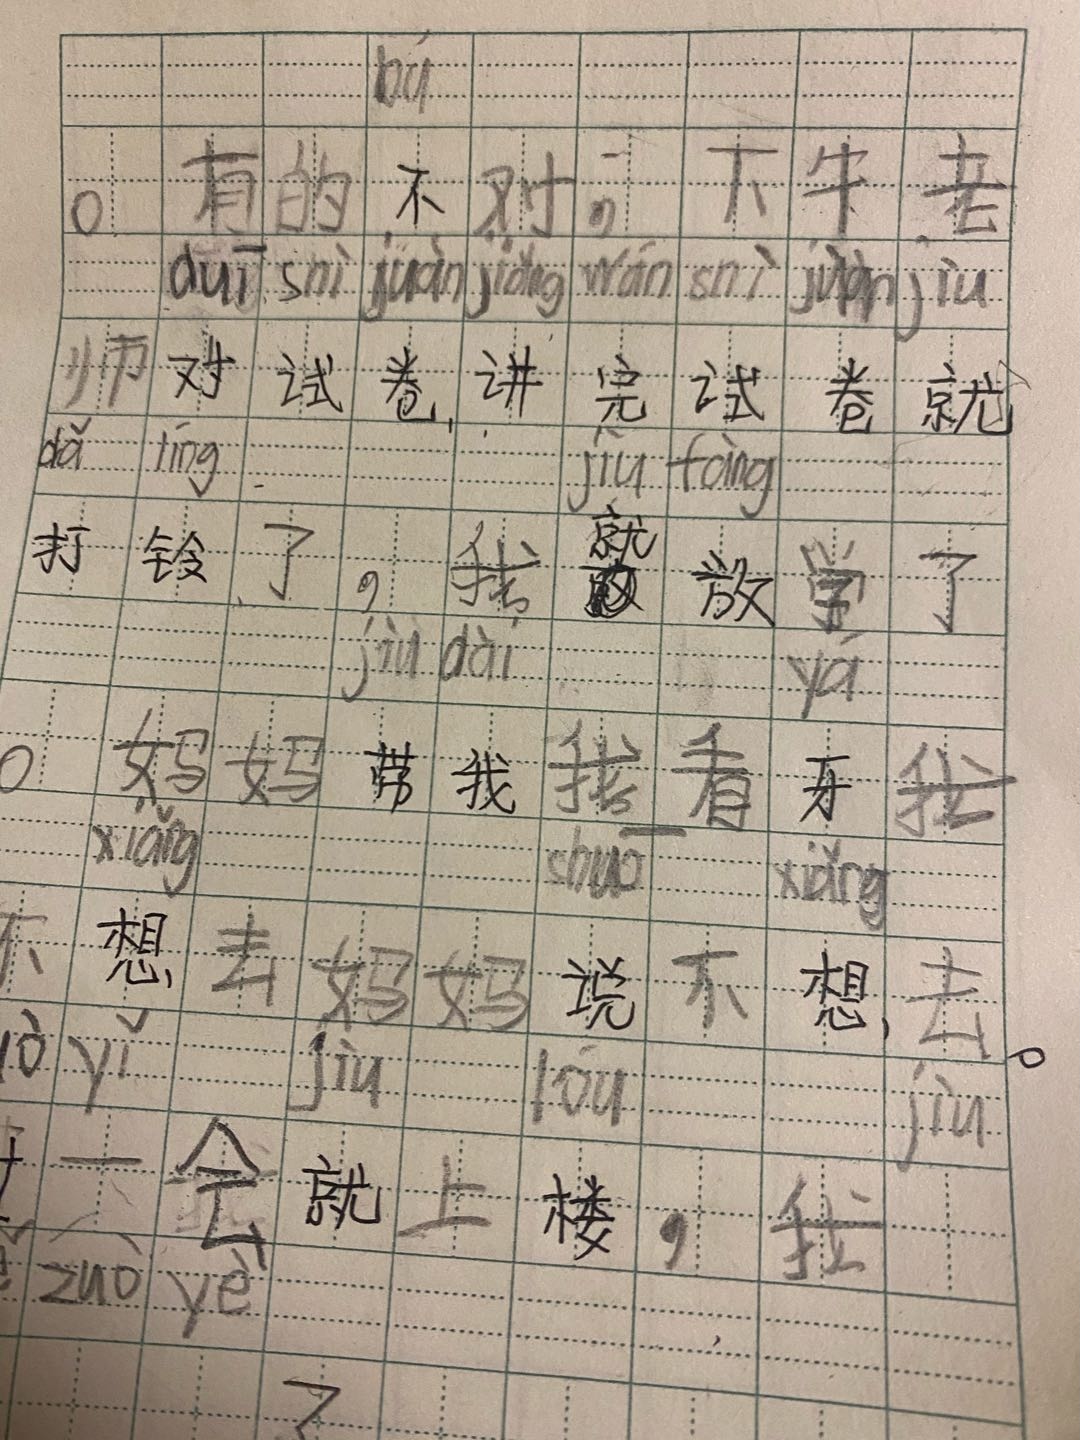 bú
。有的不对，下午老
duī shì juàn jiǎng wán shì juàn jiù
师对试卷,讲完试卷就
dǎ líng jiù fàng
打铃了，我就放学了
jiù dài yá
。妈妈带我我看牙我
xiǎng shuō xiǎng
不想,去妈妈说不想,去。
yǐ jiù lóu jiù
一会就上楼，我
zuò yè
了